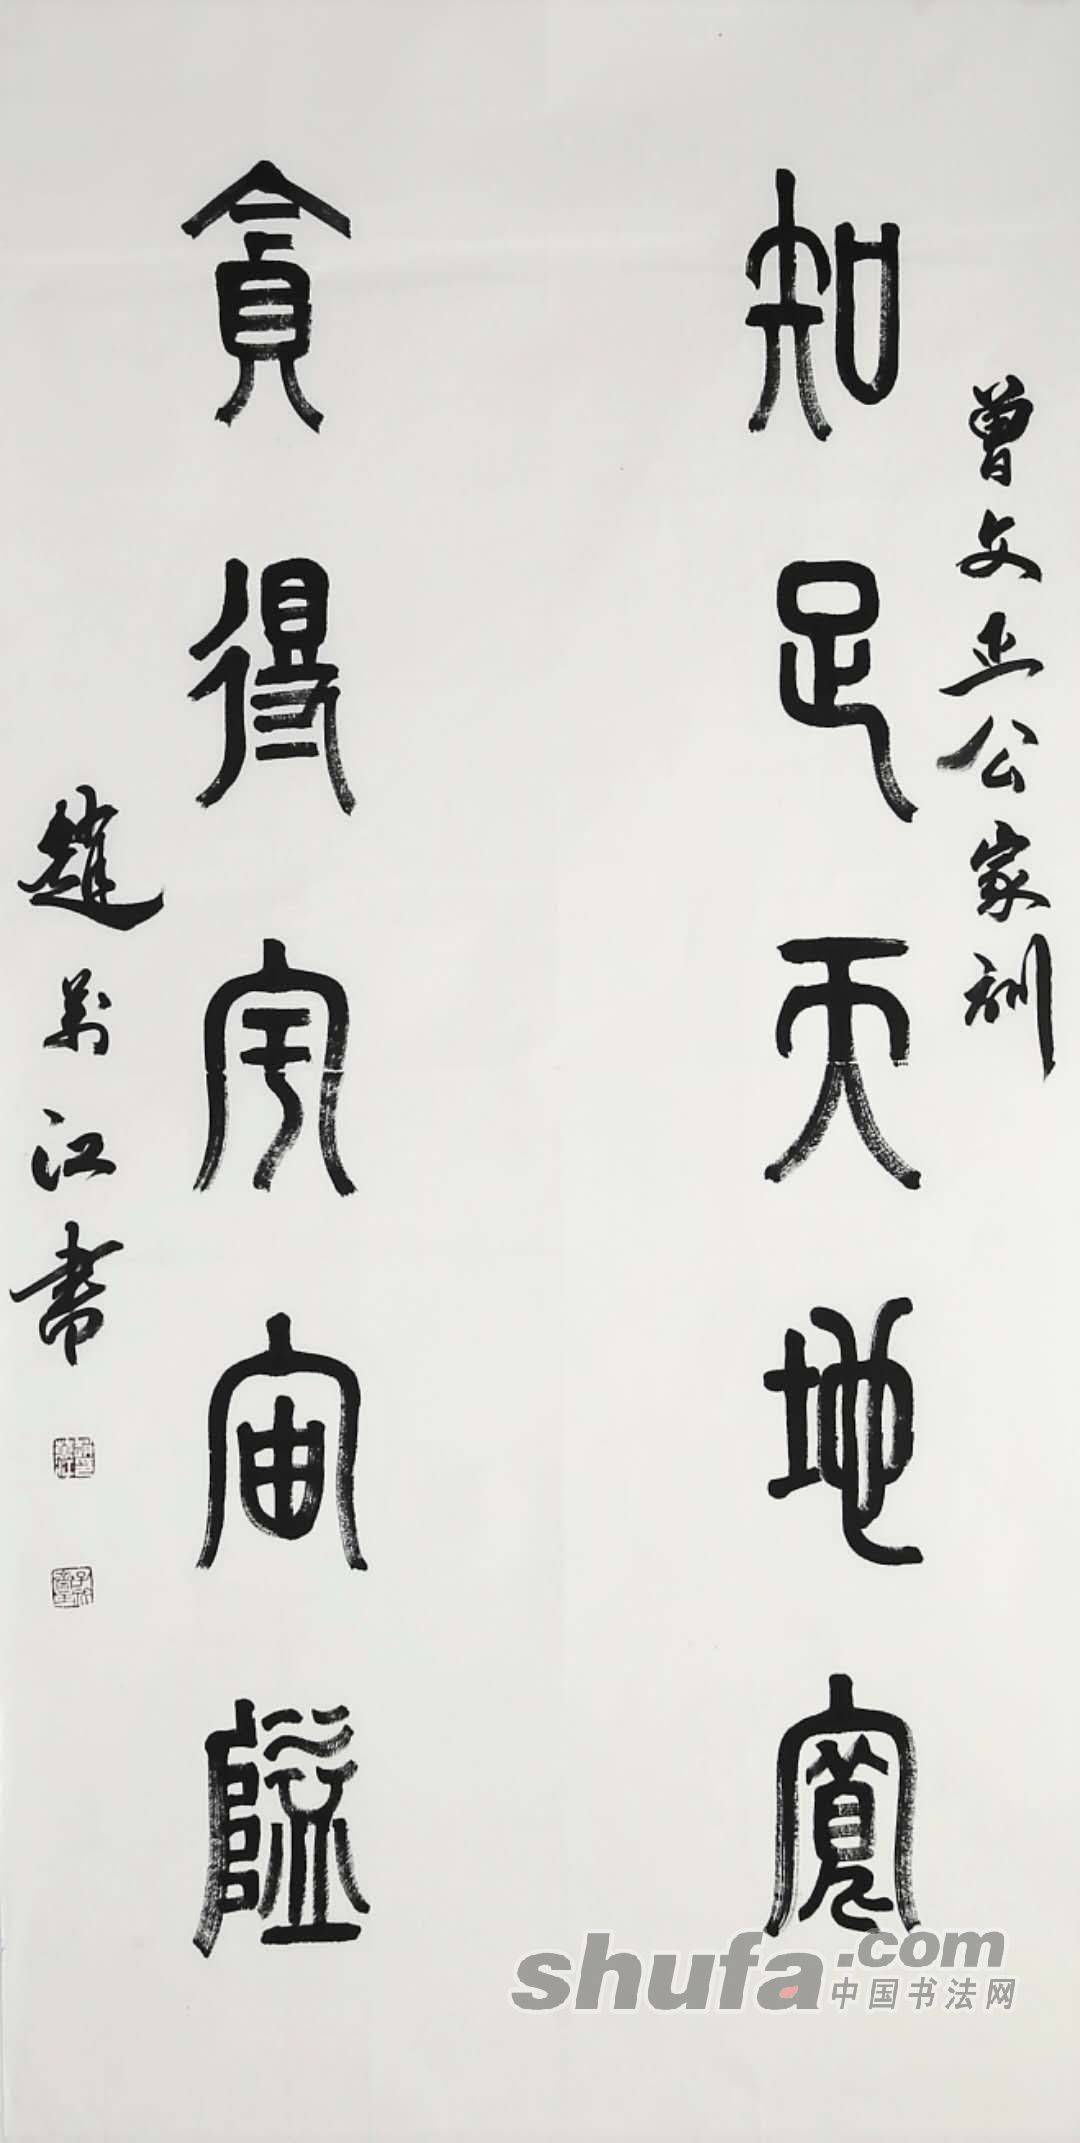 曾文正公家訓
知足天地寬
貪得宇宙隘
趙萬江書
shufa.com
中国书法网